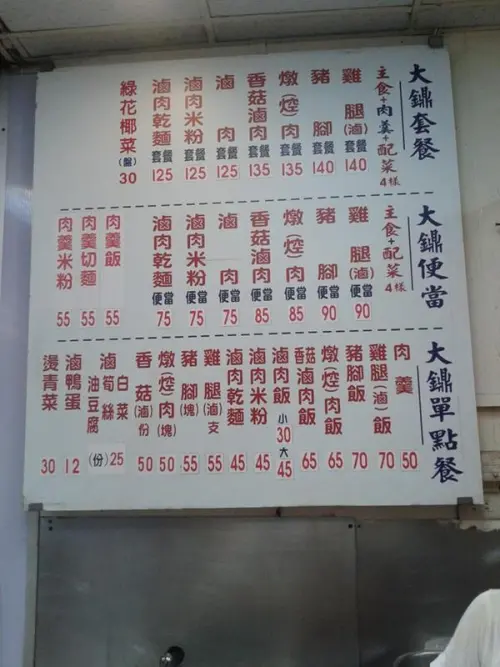 大鼎套餐
主食+肉羹+配菜4樣
雞腿(滷)套餐140
豬腳套餐140
燉(焢)肉套餐135
香菇滷肉套餐135
滷肉套餐125
滷肉米粉套餐125
滷肉乾麵套餐125
綠花椰菜(盤)30
大鼎便當
主食+配菜4樣
雞腿(滷)便當90
豬腳便當90
燉(焢)肉便當85
香菇滷肉便當85
滷肉便當75
滷肉米粉便當75
滷肉乾麵便當75
肉羹飯55
肉羹切麵55
肉羹米粉55
大鼎單點餐
肉羹50
雞腿(滷)飯70
豬腳飯70
燉(焢)肉飯65
香菇滷肉飯65
滷肉飯小30大45
滷肉米粉45
滷肉乾麵45
雞腿(滷)支55
豬腳(塊)55
燉(焢)肉(塊)50
香菇(滷)份50
滷白菜筍絲油豆腐(份)25
滷鴨蛋12
燙青菜30